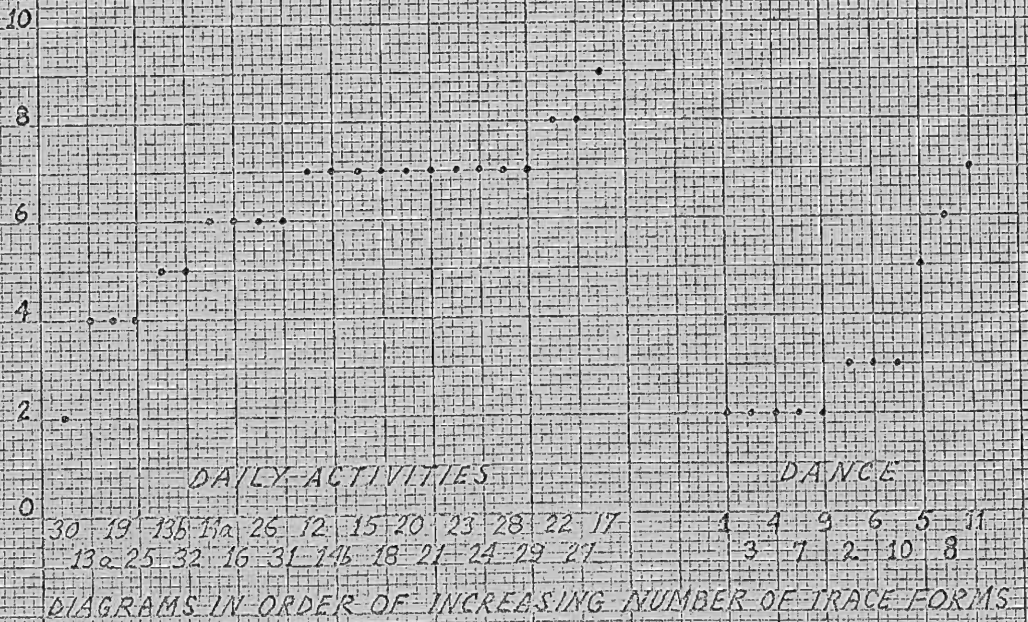 10
8
6
4
2
0
DAILY ACTIVITIES DANCE
30 19 13b 11a 26 12 15 20 23 28 22 17 1 4 9 6 5 11
13a 25 32 16 31 14b 18 21 24 29 27 3 7 2 10 8
DIAGRAMS IN ORDER OF INCREASING NUMBER OF TRACE FORMS